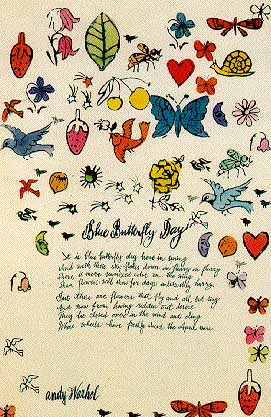 Blue Butterfly Day
It is blue butterfly day here in spring
And with these sky flakes down in flurry on flurry
There is more unmixed color on the wing
Than flowers will show for days unless they hurry.
But these are flowers that fly and all but sing
And now from having ridden out desire
They lie closed over in the wind and cling
Where wheels have freshly sliced the April mire.
andy Warhol